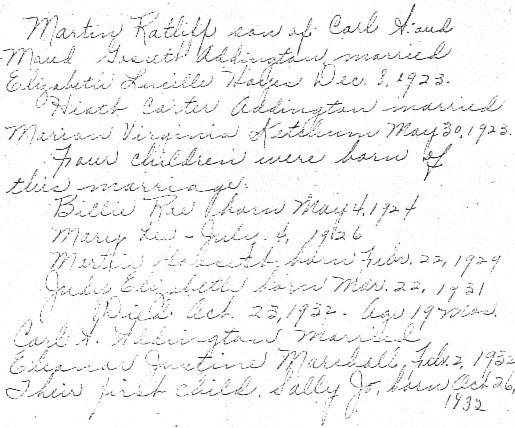 Martin Ratliff son of Carl H. and
Maud Gosueth Addington married
Elizabeth Lucille Hayes Dec. 8, 1923.
Hiath Carter Addington married
Marian Virginia Ketchum May 30, 1923.
Four children were born of
this marriage.
Billie Ree born May 4, 1924
Mary Lee - July, 4, 1926
Martin born Febr. 22, 1929
Judy Elizabeth born Mar. 22, 1931
Died Oct. 23, 1932. Age 19 mos.
Carl H. Addington Married
Eleanor Justine Marshall, Feb. 2, 1932
Their first child. Sally Jo, born Oct 26,
1932